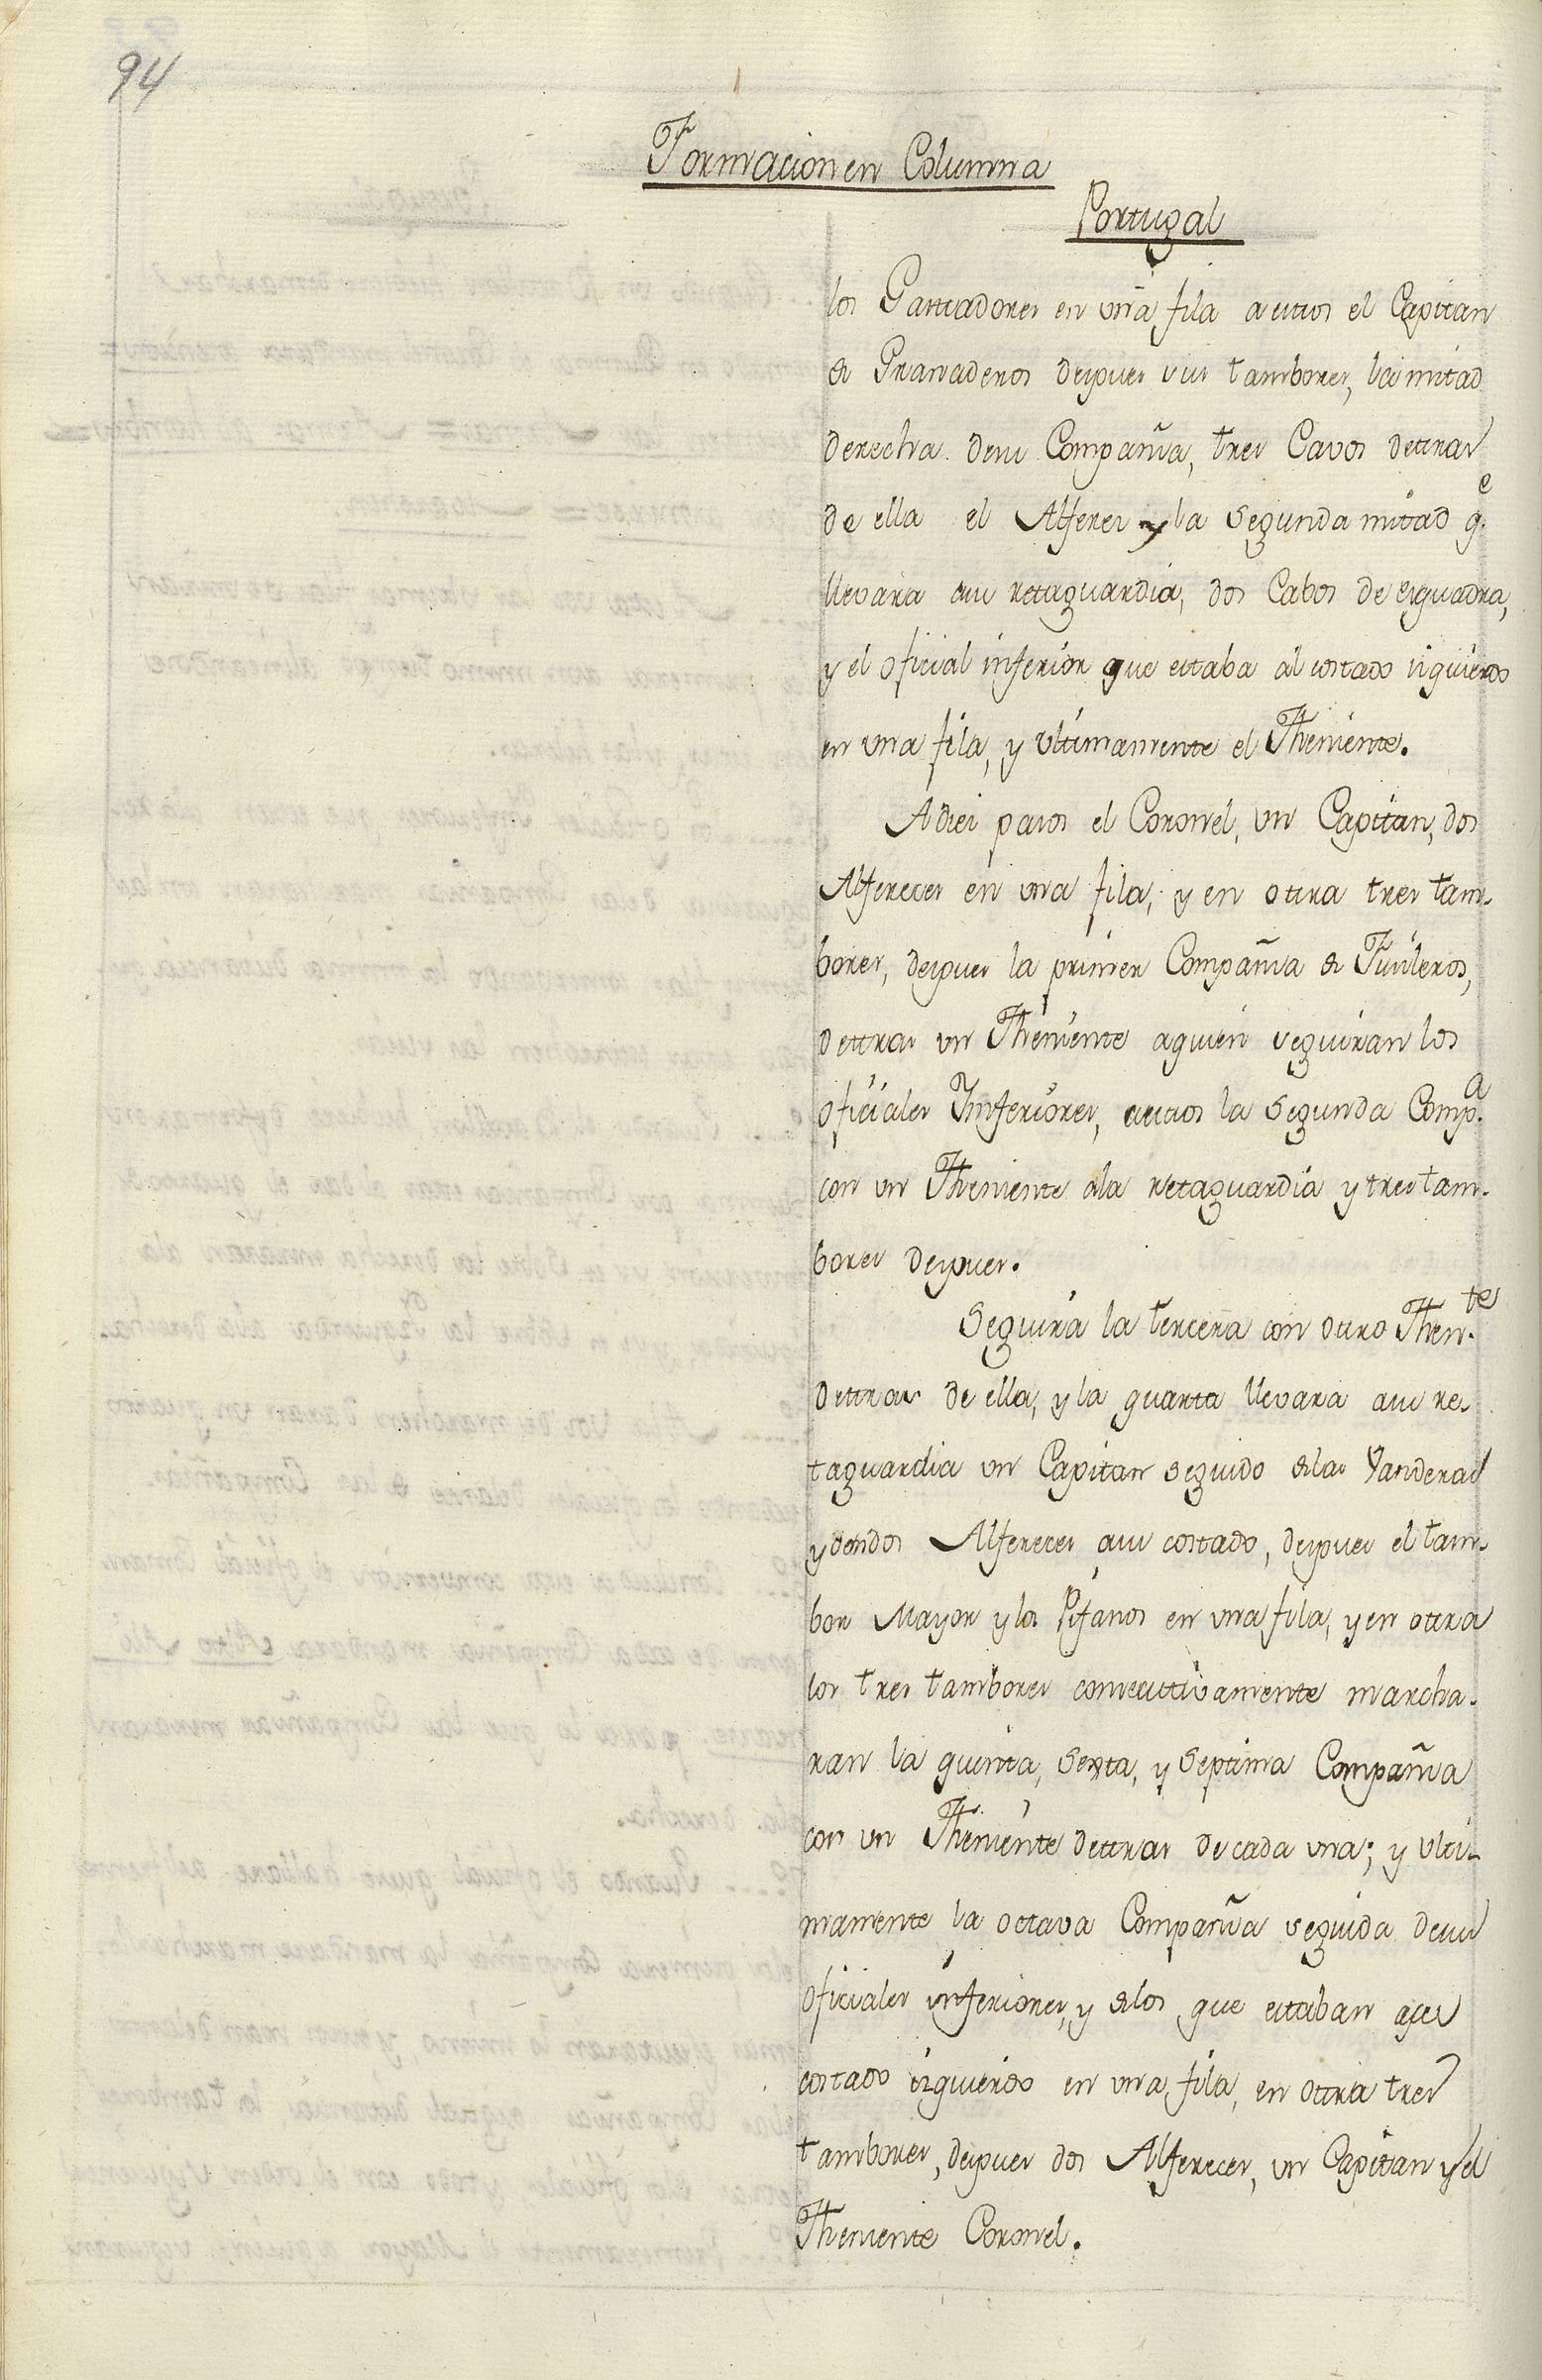 94
Formacion en Columna
Portugal
los Gastadores en una fila a estos el Capitan
de Granaderos despues sus tambores, la mitad
derecha desu Compañia, tres Cavos detras
de ella el Alferes y la segunda mitad q.e
llevara asu retaguardia, dos Cabos de esquadra,
y el oficial inferior que estaba al costado izquierdo
en una fila, y ultimamente el Theniente.
A diez pasos el Coronel, un Capitan, dos
Alfereces en una fila, y en otra tres tam-
bores, despues la primer Compañia de Fusileros,
detras un Theniente aquien seguiran los
oficiales Inferiores, aestos la segunda Comp.a
con un Theniente ala retaguardia y tres tam-
bores despues.
Seguira la tercera con otro Then.te
detras de ella, y la quarta llevara asu re-
taguardia un Capitan seguido delas Vanderas
y dos Alfereces asu costado, despues el tam-
bor Mayor y los Pifanos en una fila, y en otra
los tres tambores consecutivamente marcha-
ran la quinta, sexta, y septima Compañia
con un Theniente detras de cada una; y ulti-
mamente la octava Compañia seguida desus
oficiales inferiores, y delos que estaban asu
costado izquierdo en una fila, en otra tres
tambores, despues dos Alfereces, un Capitan y el
Theniente Coronel.